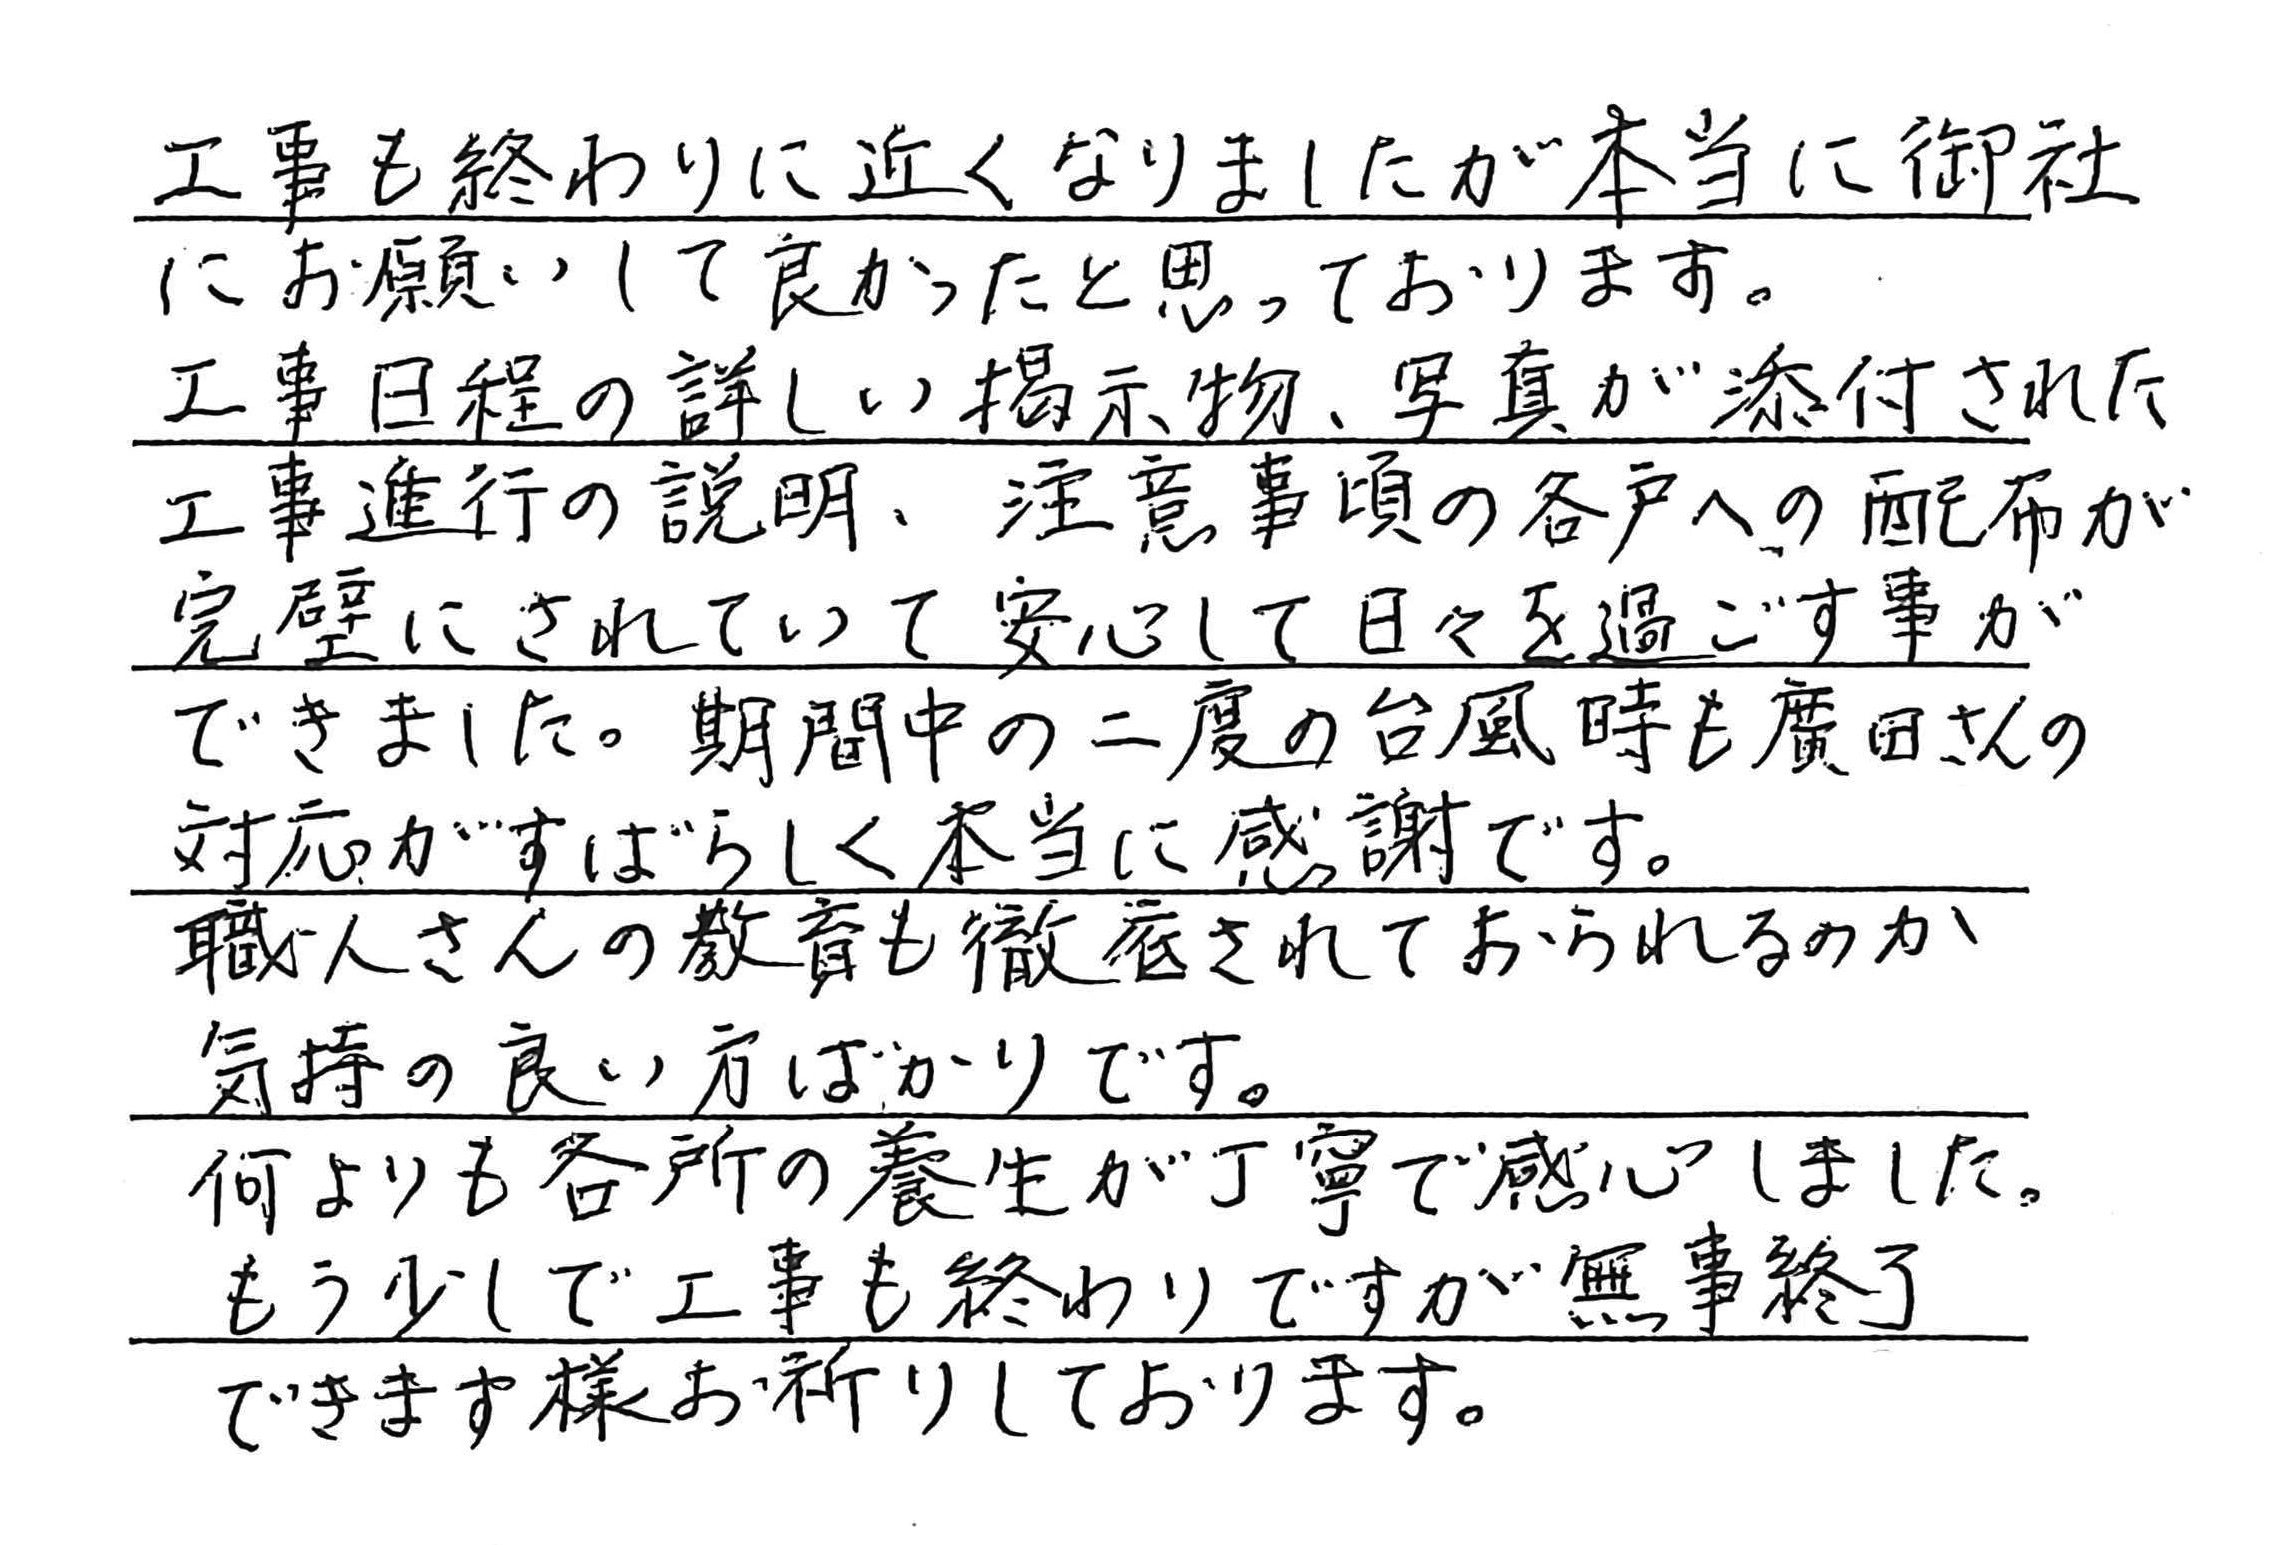 工事も終わりに近くなりましたが本当に御社
にお願いして良かったと思っております。
工事日程の詳しい掲示物、写真が添付された
工事進行の説明、注意事項の各戸への配布が
完璧にされていて安心して日々を過ごす事が
できました。期間中の二度の台風時も廣田さんの
対応がすばらしく本当に感謝です。
職人さんの教育も徹底されておられるのか
気持の良い方ばかりです。
何よりも各所の養生が丁寧で感心しました。
もう少しで工事も終わりですが無事終了
できます様お祈りしております。